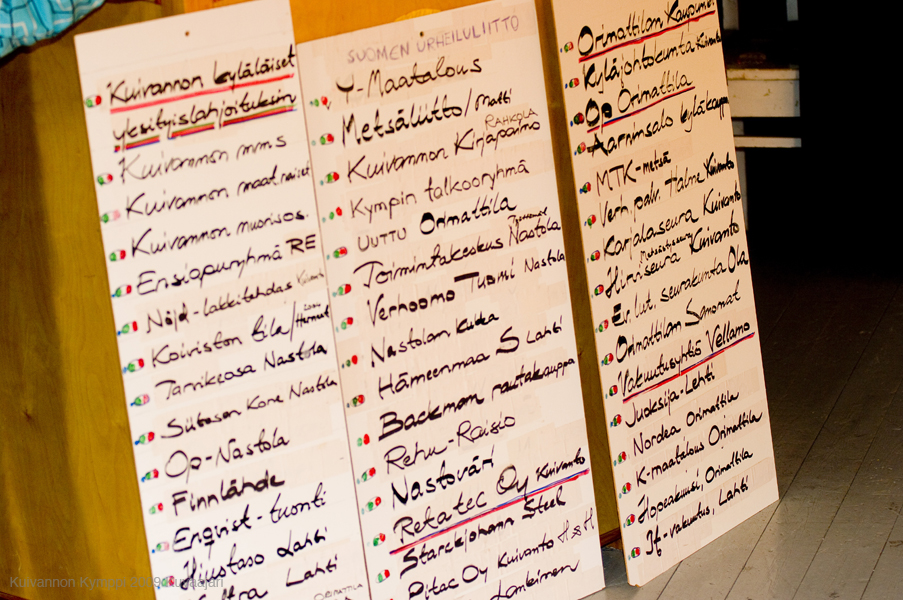 Kuivannon kyläläiset
yksityislahjoituksin
Kuivannon mms
Kuivannon maat.naiset
Kuivannon nuorisos.
Ensiapuryhmä RE
Nöjd-lakkitehdas
Koiviston tila/
Tarvikeosa Nastola
Siitasen Kone Nastola
Op-Nastola
Finnlähde
Enqvist-tuonti
Lahti
Lahti
SUOMEN URHEILULIITTO
Y-Maatalous
Metsäliitto/Matti
RAHKOLA
Kuivannon Kirjapaino
Kympin talkooryhmä
UUTTU Orimattila
Toimintakeskus Nastola
Verhoomo Tuomi Nastola
Nastolan Kukka
Hämeenmaa S Lahti
Backman rautakauppa
Rehu-Raisio
Nastoväri
Retatec Oy Kuivanto
Starckjohann Steel
Pitac Oy Kuivanto H & H
Lankeinen
Orimattilan Kaupunki
Kyläjohtokunta Kuivanto
Op Orimattila
Aarnisalo kyläkauppa
MTK-metsä
Verh.palv. Halme Kuivanto
Karjalaseura Kuivanto
Hirviseura Kuivanto
Ev. lut. seurakunta Ola
Orimattilan Sanomat
Vakuutusyhtiö Vellamo
Juoksija-Lehti
Nordea Orimattila
K-maatalous Orimattila
Hopeakuusi, Orimattila
If-vakuutus, Lahti